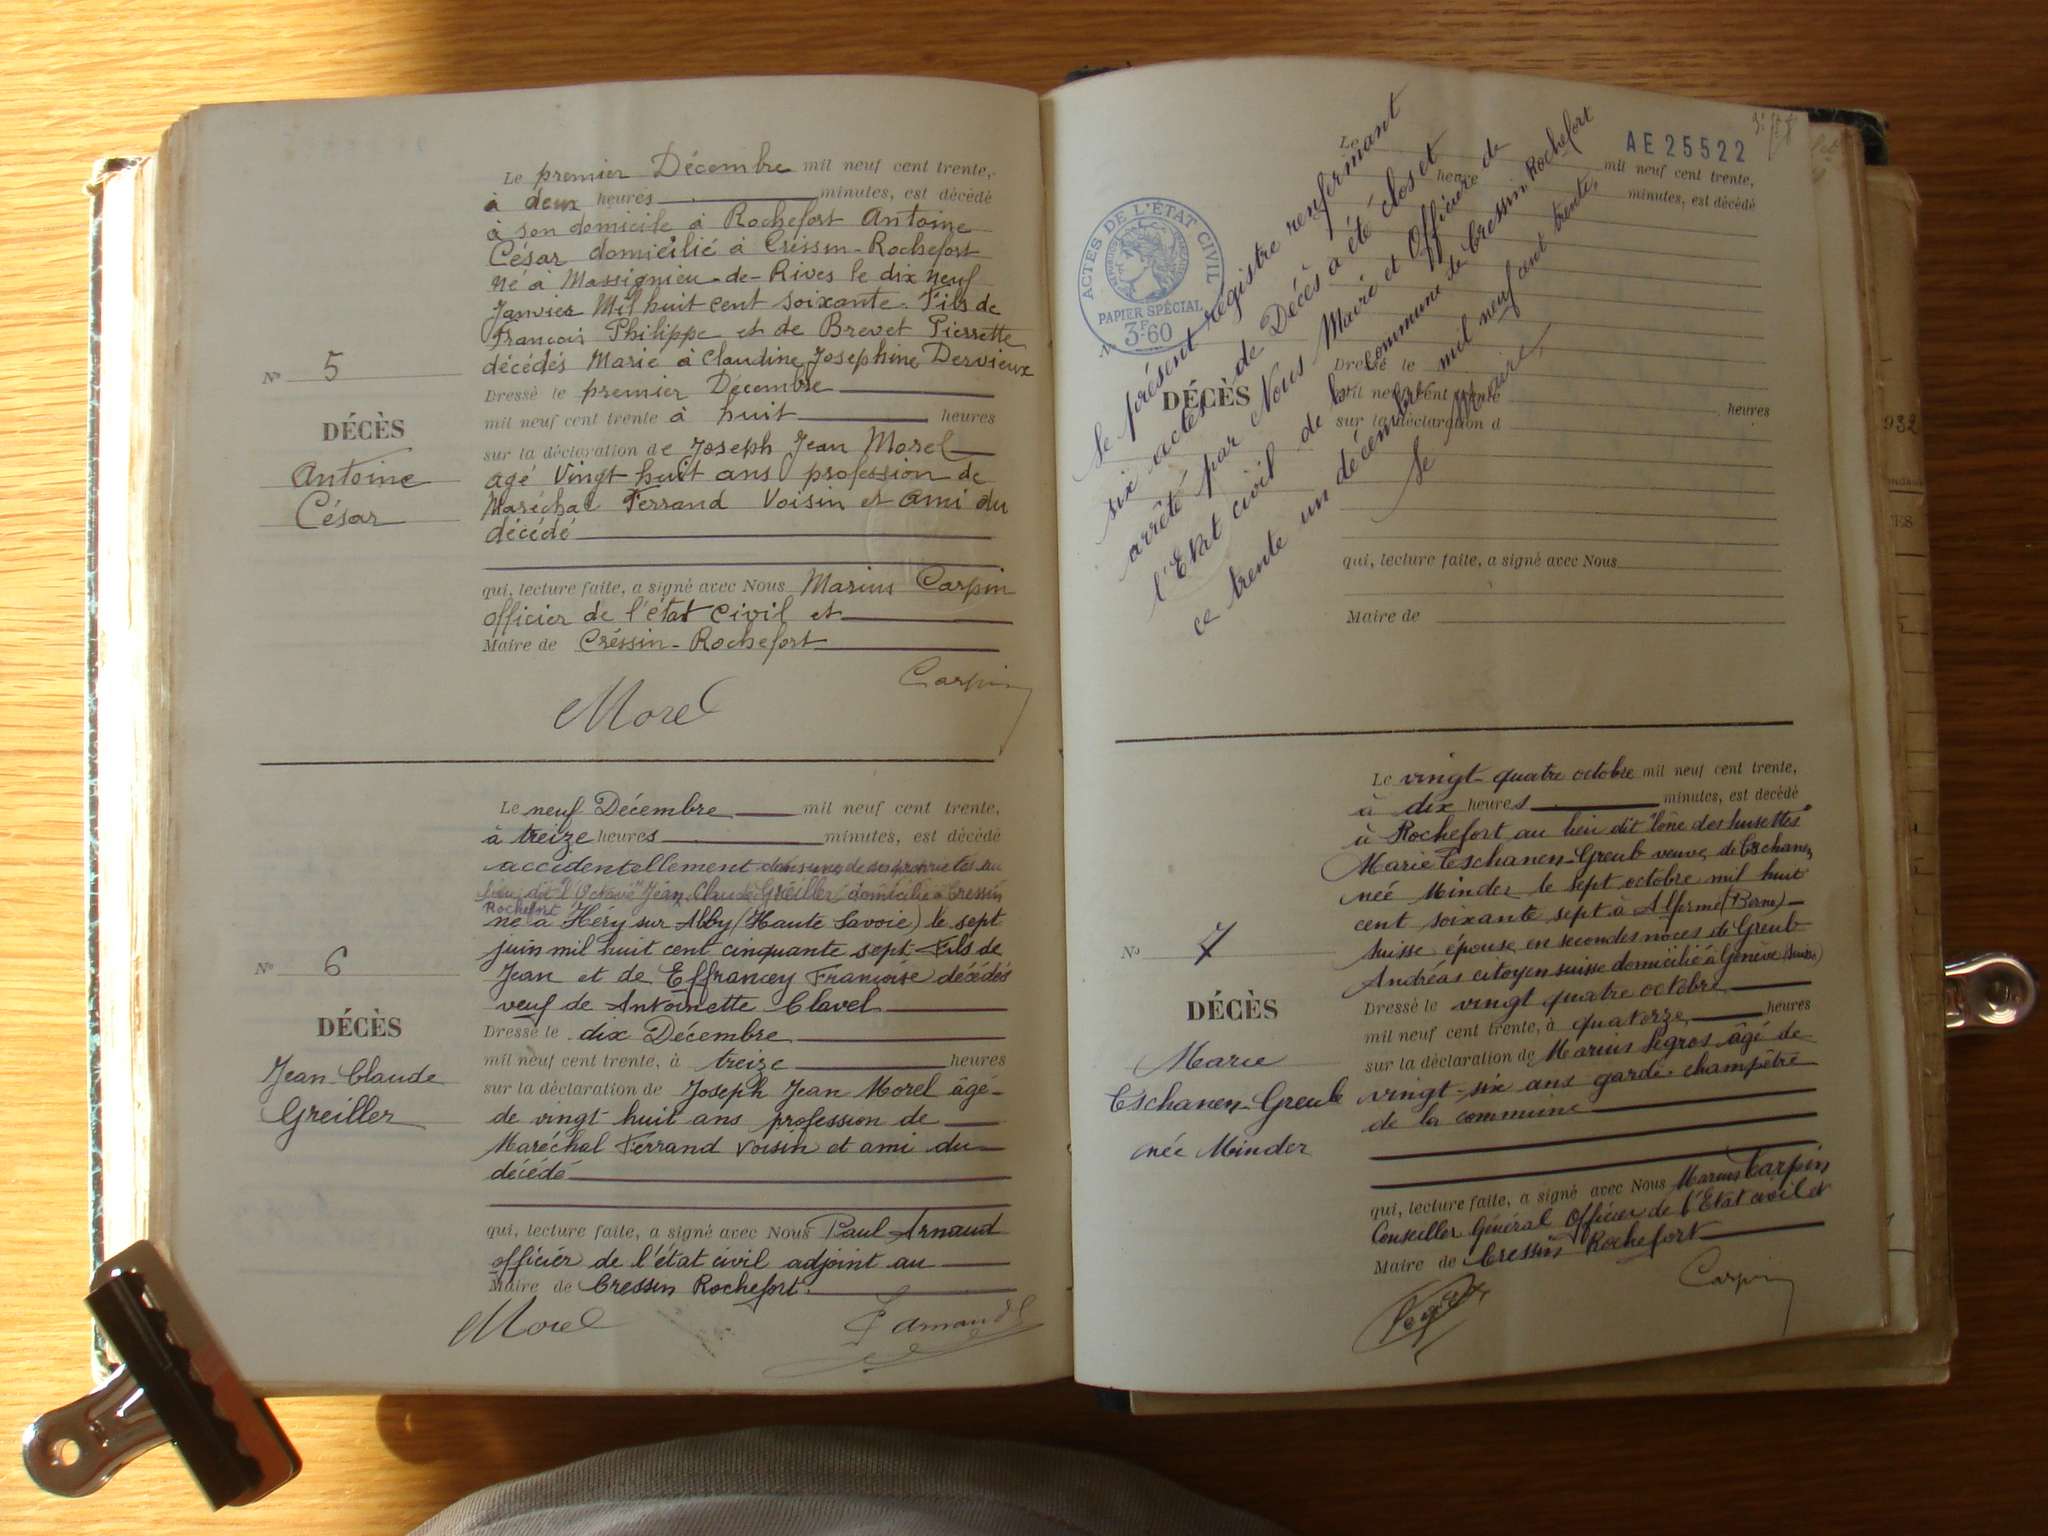 Le premier Décembre mil neuf cent trente,
à deux heures minutes, est décédé
à son domicile à Rochefort Antoine
César domicilié à Créssin-Rochefort
né à Massignieu-de-Rives le dix neuf
Janvier Mil huit cent soixante. Fils de
François Philippe et de Brevet Pierrette
décédés Marié à Claudine Josephine Dervieux
Dressé le premier Décembre
mil neuf cent trente à huit heures
sur la déclaration de Joseph Jean Morel
agé Vingt huit ans profession de
Maréchal Ferrand Voisin et ami du
décédé
qui, lecture faite, a signé avec Nous Marius Carpin
officier de l'état civil et
Maire de Créssin-Rochefort
Carpin
Morel
No 5
DÉCÈS
Antoine
César
Le neuf Décembre mil neuf cent trente,
à treize heures minutes, est décédé
accidentellement dans une de ses propriétés au
lieu dit "l'Octave" Jean Claude Greiller domicilié à Cressin
Rochefort
né à Héry sur Alby (Haute Savoie) le sept
juin mil huit cent cinquante sept. Fils de
Jean et de Effrancey Françoise décédés
veuf de Antoinette Clavel
Dressé le dix Décembre
mil neuf cent trente, à treize heures
sur la déclaration de Joseph Jean Morel âgé
de vingt huit ans profession de
Maréchal Ferrand voisin et ami du
décédé
qui, lecture faite, a signé avec Nous Paul Arnaud
officiér de l'état civil adjoint au
Maire de Cressin Rochefort.
Morel P Arnaud
No 6
DÉCÈS
Jean Claude
Greiller
AE 25522
ACTES DE L'ÉTAT CIVIL
PAPIER SPÉCIAL
3F.60
Le
mil neuf cent trente,
heure
minutes, est décédé
DÉCÈS
Dressé le
mil neuf cent trente
heures
sur la déclaration d
qui, lecture faite, a signé avec Nous
Maire de
Le présent registre renfermant
six actes de Décès a été clos et
arrêté par Nous Maire et Officier de
l'Etat civil de la commune de Cressin Rochefort
ce trente un décembre mil neuf cent trente.
Le Maire,
Le vingt-quatre octobre mil neuf cent trente,
à dix heures minutes, est décédé
à Rochefort au lieu dit "lône des husettes"
Marie Eschanen-Greub veuve de Eschanen
née Minder le sept octobre mil huit
cent soixante sept à Alferme (Berne)
Suisse épouse en secondes noces de Greub
Andréas citoyen suisse domicilié à Genève (Suisse)
Dressé le vingt quatre octobre
mil neuf cent trente, à quatorze heures
sur la déclaration de Marius Pégros âgé de
vingt-six ans garde-champêtre
de la commune
qui, lecture faite, a signé avec Nous Marius Carpin
Conseiller Général Officier de l'Etat civil et
Maire de Cressin Rochefort
Carpin
No 7
DÉCÈS
Marie
Eschanen-Greub
née Minder
932